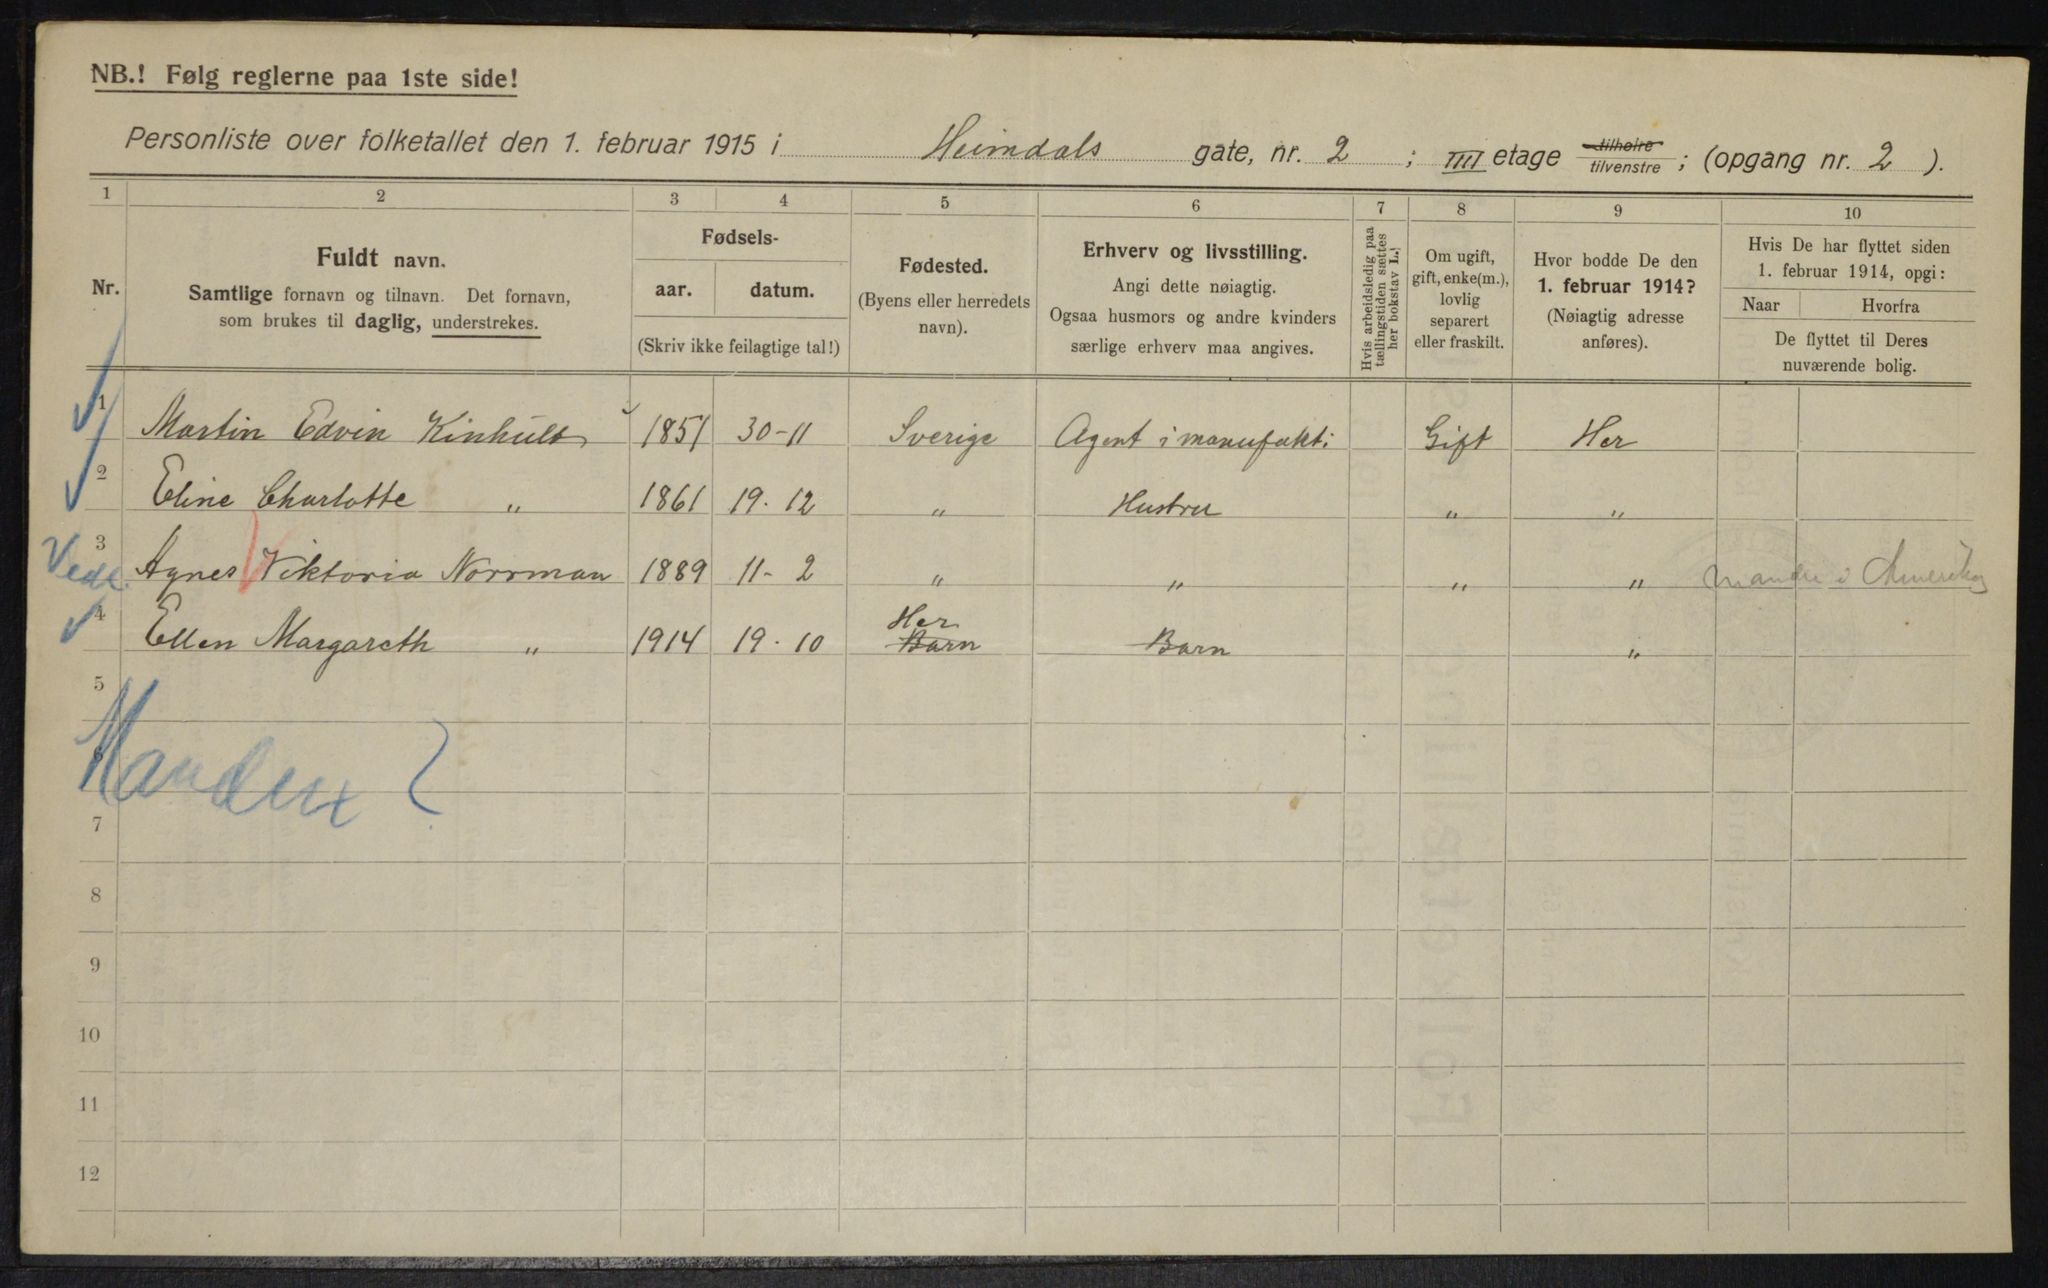 NB.! Følg reglerne paa 1ste side!
Personliste over folketallet den 1. februar 1915 i Heimdals gate, nr. 2 ; IIII etage tilhøire tilvenstre ; (opgang nr. 2 ).
1 2 3 4 5 6 7 8 9 10
Nr.
Fuldt navn.
Samtlige fornavn og tilnavn. Det fornavn,
som brukes til daglig, understrekes.
Fødsels-
aar. datum.
(Skriv ikke feilagtige tal!)
Fødested.
(Byens eller herredets
navn).
Erhverv og livsstilling.
Angi dette nøiagtig.
Ogsaa husmors og andre kvinders
særlige erhverv maa angives.
Hvis arbeidsledig paa
tællingstiden sættes
her bokstav L.
Om ugift,
gift, enke(m.),
lovlig
separert
eller fraskilt.
Hvor bodde De den
1. februar 1914?
(Nøiagtig adresse
anføres).
Hvis De har flyttet siden
1. februar 1914, opgi:
Naar Hvorfra
De flyttet til Deres
nuværende bolig.
1 Martin Edvin Kinhult 1851 30-11 Sverige Agent i manufakt: Gift Her
2 Eline Charlotte " 1861 19. 12 " Hustru " "
3 Agnes Viktoria Norrman 1889 11- 2 " " " " manden i Amerika
Vedl.
Her
4 Ellen Margareth " 1914 19. 10 Barn Barn "
5
6
Manden ?
7
8
9
10
11
12